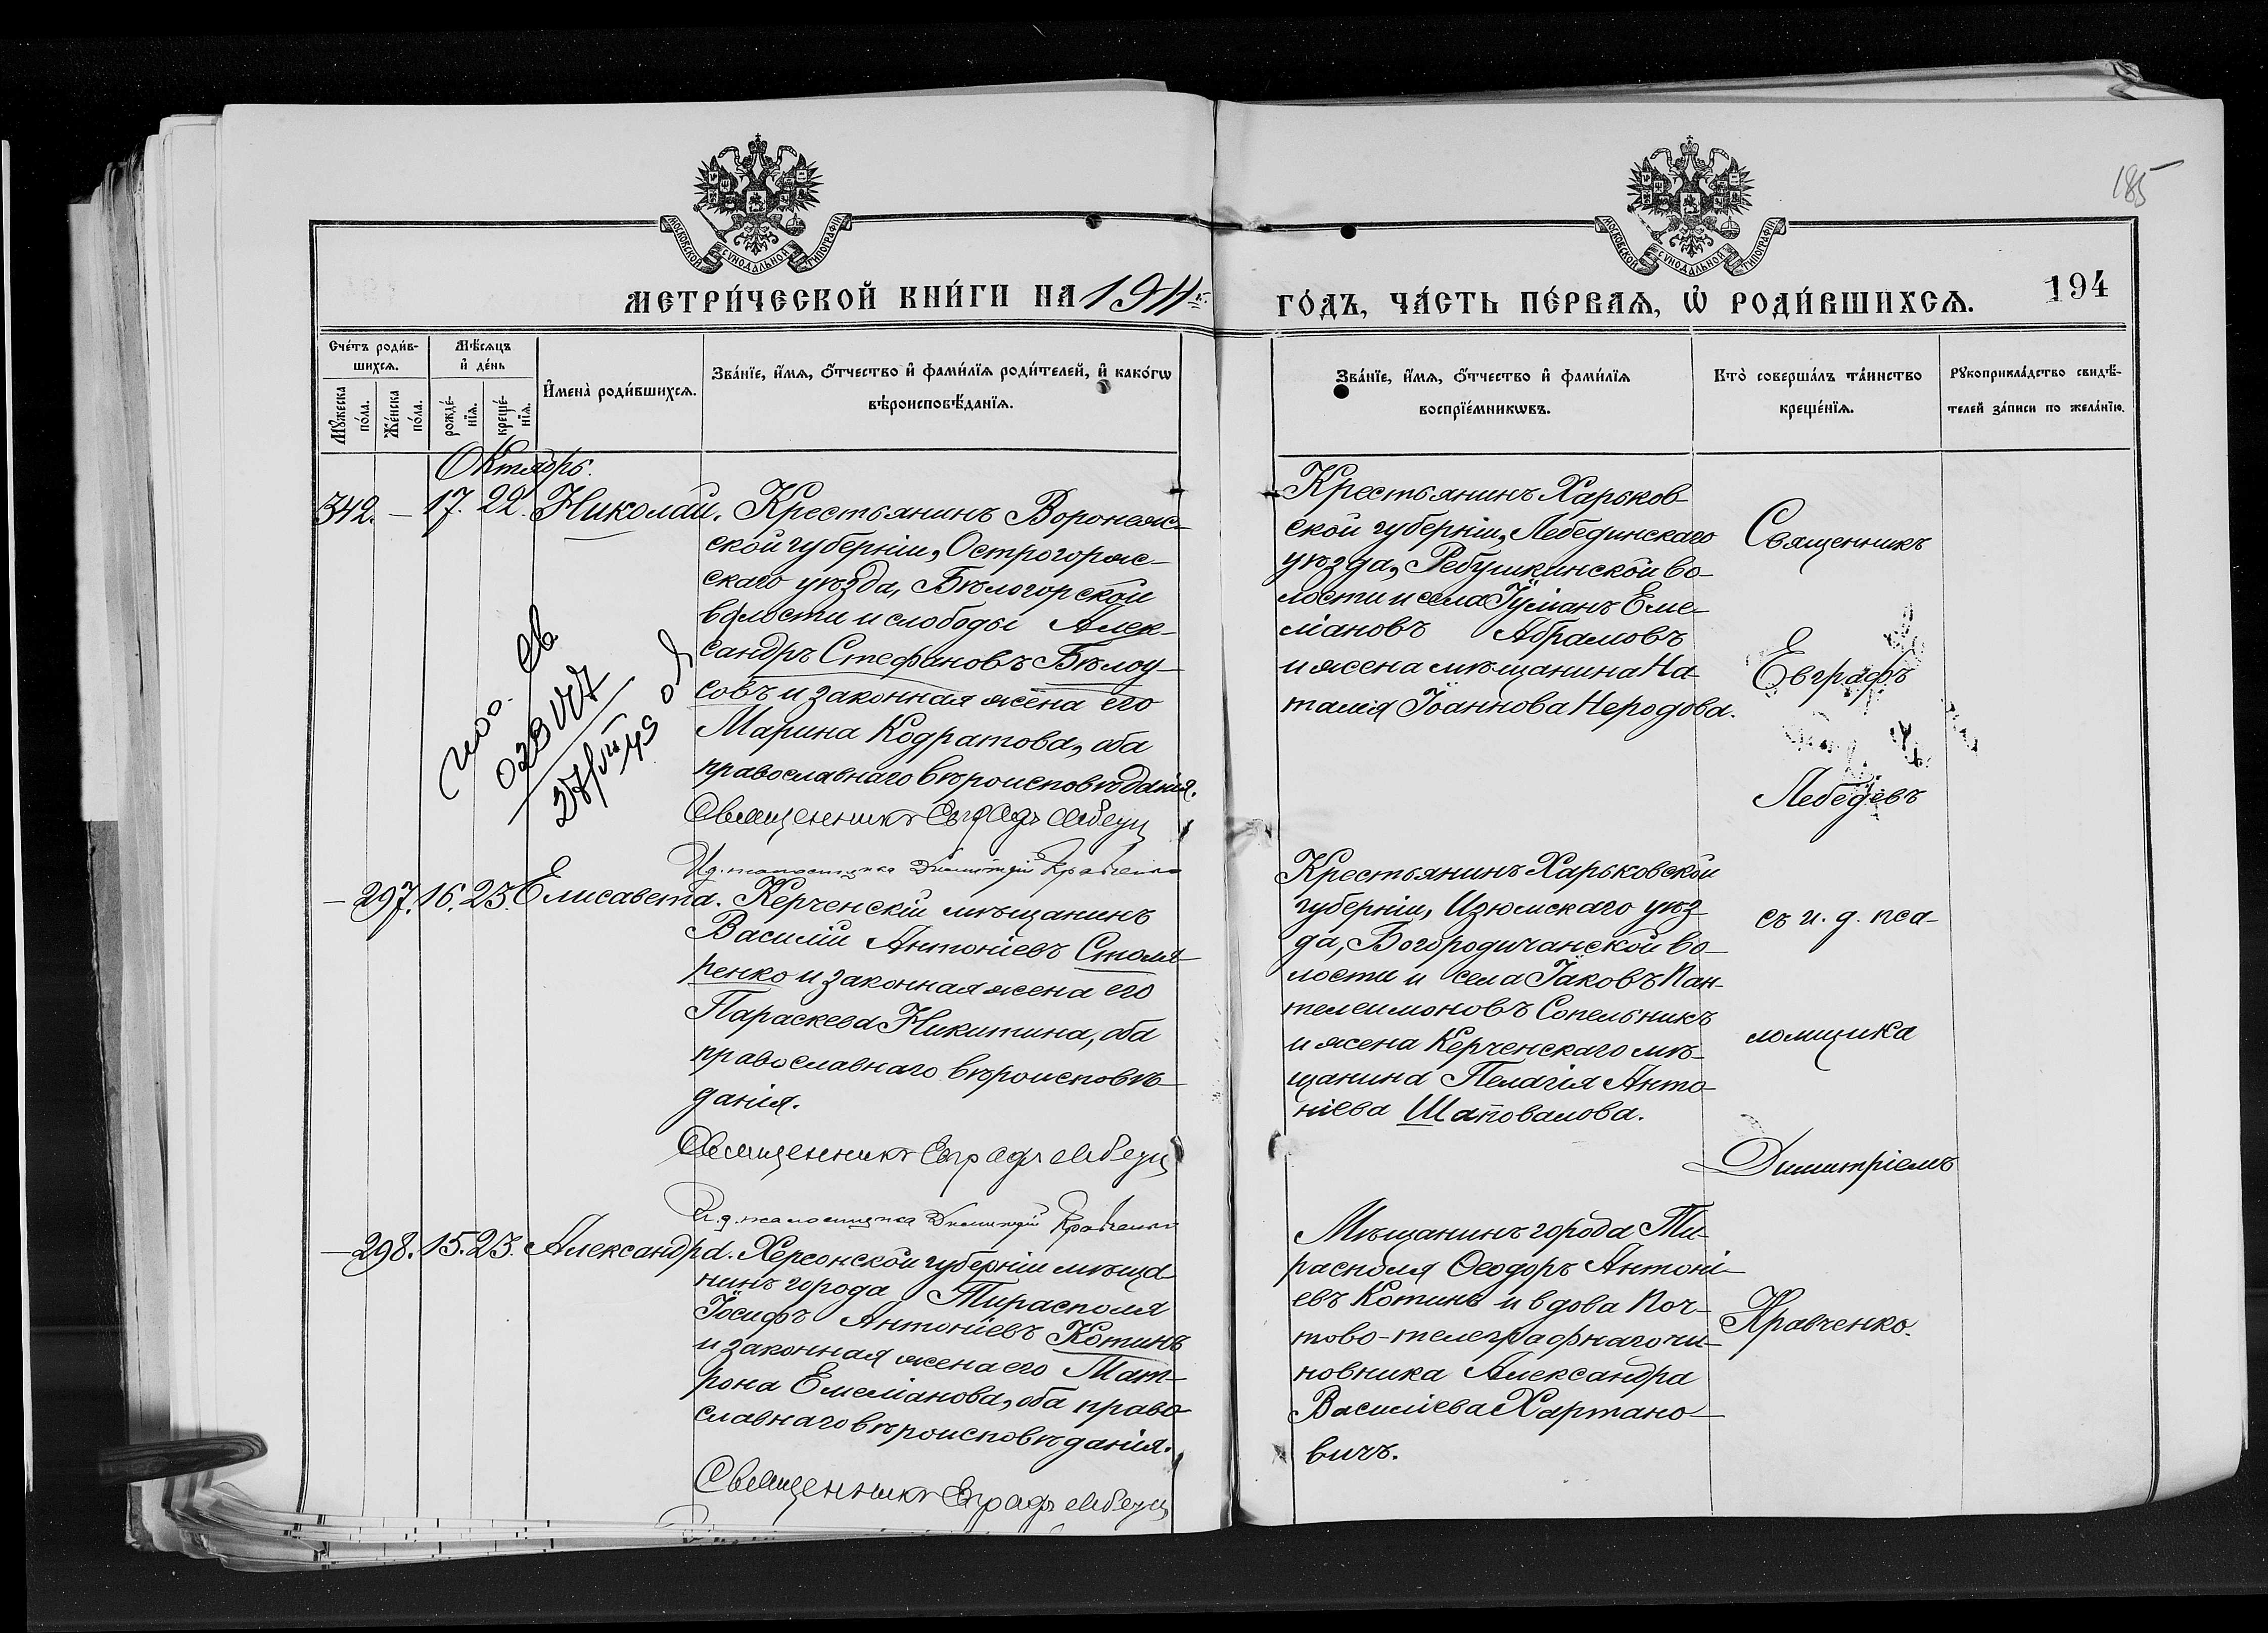 185
МОСКОВСКОЙ СУНОДАЛЬНОЙ ТИПОГРАФІИ
МОСКОВСКОЙ СУНОДАЛЬНОЙ ТИПОГРАФІИ
МЕТРИ́ЧЕСКОЙ КНИ́ГИ НА 1911 г.
ГО́ДЪ, ЧА́СТЬ ПЕ́РВАѦ, Ѡ҆ РОДИ́ВШИХСѦ.
194
Сче́тъ роди́в-
шихсѧ.
Мꙋ́жеска по́ла.
Же́нска по́ла.
Мѣ́сѧцъ
и҆ де́нь
рожде́-
нїѧ.
креще́-
нїѧ.
И҆мена̀ роди́вшихсѧ.
Зва́нїе, и҆́мѧ, ѻ҆́тчество и҆ фами́лїѧ роди́телей, и҆ како́гѡ
вѣроисповѣ́данїѧ.
Зва́нїе, и҆́мѧ, ѻ҆́тчество и҆ фами́лїѧ
воспрїе́мникѡвъ.
Кто̀ соверша́лъ та́инство
креще́нїѧ.
Рꙋкоприкла́дство свидѣ́-
телей за́писи по жела́нїю.
Октябрь.
342. – 17. 22. Николай. Крестьянинъ Воронеж-
ской губерніи, Острогорож-
скаго уѣзда, Бѣлогорской
волости и слободы Алек-
сандръ Стефановъ Бѣлоу-
совъ и законная жена его
Марина Кодратова, оба
православнаго вѣроисповѣданія.
Священникъ Евграфъ Лебедевъ
И. д. псаломщика Димитрій Кравченко
Крестьянинъ Харьков-
ской губерніи, Лебединскаго
уѣзда, Ребушкинской во-
лости и села Іуліанъ Еме-
ліановъ Абрамовъ
и жена мѣщанина На-
талія Іоаннова Неродова.
Священникъ
Евграфъ
Лебедевъ
– 297. 16. 23. Елисавета. Керченскій мѣщанинъ
Василій Антоніевъ Столя-
ренко и законная жена его
Параскева Никитина, оба
православнаго вѣроисповѣ-
данія.
Священникъ Евграфъ Лебедевъ
И. д. псаломщика Димитрій Кравченко
Крестьянинъ Харьковской
губерніи, Изюмскаго уѣз-
да, Богородичанской во-
лости и села Іаковъ Пан-
телеимоновъ Сопельникъ
и жена Керченскаго мѣ-
щанина Пелагія Анто-
ніева Шаповалова.
съ и. д. пса-
ломщика
Димитріемъ
– 298. 15. 23. Александра. Херсонской губерніи мѣща-
нинъ города Тирасполя
Іосифъ Антоніевъ Котинъ
и законная жена его Мат-
рона Емеліанова, оба право-
славнаго вѣроисповѣданія.
Священникъ Евграфъ Лебедевъ
Мѣщанинъ города Ти-
располя Ѳеодоръ Антоні-
евъ Котинъ и вдова поч-
тово-телеграфнаго чи-
новника Александра
Василіева Хартано-
вичъ.
Кравченко.